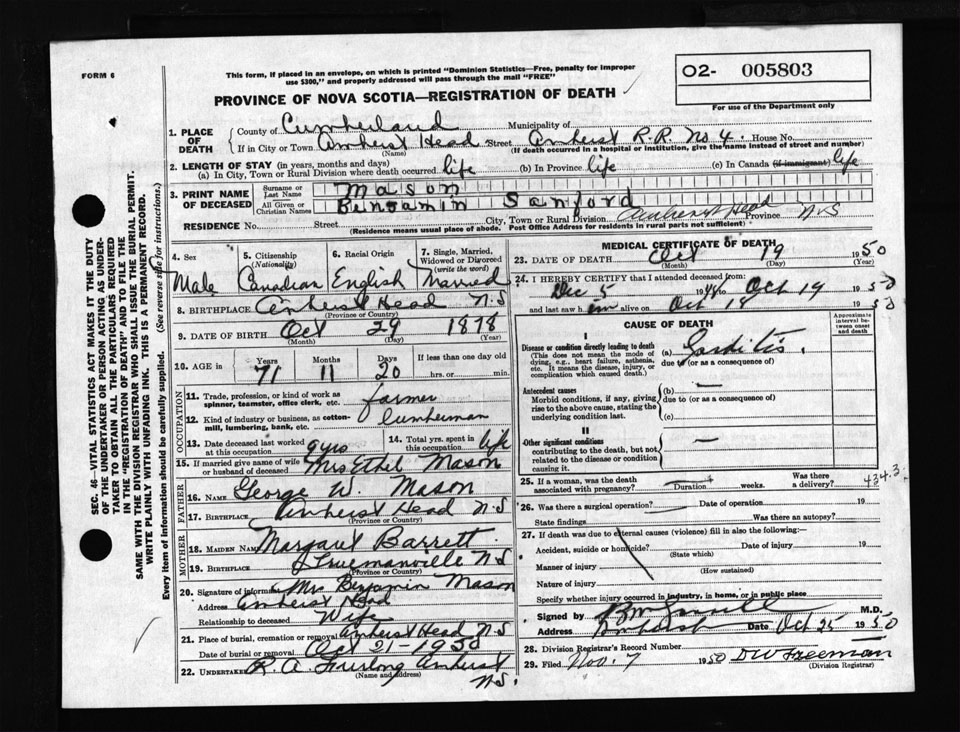 FORM 6
This form, if placed in an envelope, on which is printed "Dominion Statistics—Free, penalty for improper
use $300," and properly addressed will pass through the mail "FREE"
O2- 005803
For use of the Department only
PROVINCE OF NOVA SCOTIA—REGISTRATION OF DEATH
1. PLACE OF DEATH
County of Cumberland Municipality of
If in City or Town Amherst Head Street Amherst R.R. No 4. House No.
(Name) (If death occurred in a hospital or institution, give the name instead of street and number)
2. LENGTH OF STAY (in years, months and days)
(a) In City, Town or Rural Division where death occurred life (b) In Province life (c) In Canada (if immigrant) life
3. PRINT NAME OF DECEASED
Surname or Last Name Mason
All Given or Christian Names Benjamin Sanford
RESIDENCE No. Street City, Town or Rural Division Amherst Head Province N.S
(Residence means usual place of abode. Post Office Address for residents in rural parts not sufficient)
4. Sex
5. Citizenship (Nationality)
6. Racial Origin
7. Single, Married, Widowed or Divorced (write the word)
Male Canadian English Married
8. BIRTHPLACE Amherst Head N.S
(Province or Country)
9. DATE OF BIRTH Oct 29 1878
(Month) (Day) (Year)
10. AGE in Years Months Days If less than one day old
71 11 20 hrs. or min.
OCCUPATION
11. Trade, profession, or kind of work as spinner, teamster, office clerk, etc. farmer
12. Kind of industry or business, as cotton-mill, lumbering, bank, etc. lumberman
13. Date deceased last worked at this occupation 9 yrs
14. Total yrs. spent in this occupation life
15. If married give name of wife or husband of deceased Mrs Ethel Mason
FATHER
16. NAME George W. Mason
17. BIRTHPLACE Amherst Head N.S
(Province or Country)
MOTHER
18. MAIDEN NAME Margaret Barrett
19. BIRTHPLACE Truemanville N.S
(Province or Country)
20. Signature of informant Mrs Benjamin Mason
Address Amherst Head
Relationship to deceased Wife
21. Place of burial, cremation or removal Amherst Head N.S
Date of burial or removal Oct 21-1950
22. UNDERTAKER R. A. Furlong Amherst
(Name and address) N.S.
MEDICAL CERTIFICATE OF DEATH
23. DATE OF DEATH Oct 19 1950
(Month) (Day) (Year)
24. I HEREBY CERTIFY that I attended deceased from:
Dec 5 1948 to Oct 19 1950
and last saw him alive on Oct 18 1950
CAUSE OF DEATH
Approximate interval between onset and death
I
Disease or condition directly leading to death
(This does not mean the mode of dying, e.g., heart failure, asthenia, etc. It means the disease, injury, or complication which caused death.)
(a)
due to (or as a consequence of)
Antecedent causes
Morbid conditions, if any, giving rise to the above cause, stating the underlying condition last.
(b) —
due to (or as a consequence of)
(c)
II
Other significant conditions
contributing to the death, but not related to the disease or condition causing it. —
25. If a woman, was the death associated with pregnancy? Duration weeks. Was there a delivery?
26. Was there a surgical operation? Date of operation 19
State findings Was there an autopsy?
27. If death was due to external causes (violence) fill in also the following:
Accident, suicide or homicide? Date of injury 19
(State which)
Manner of injury
(How sustained)
Nature of injury
Specify whether injury occurred in industry, in home, or in public place
Signed by M.D.
Address Amherst Date Oct 25 1950
28. Division Registrar's Record Number
29. Filed Nov. 7 1950 D W Freeman
(Division Registrar)
SEC. 46—VITAL STATISTICS ACT MAKES IT THE DUTY
OF THE UNDERTAKER OR PERSON ACTING AS UNDER-
TAKER TO OBTAIN ALL THE PARTICULARS REQUIRED
IN THE "REGISTRATION OF DEATH" AND TO FILE THE
SAME WITH THE DIVISION REGISTRAR WHO SHALL ISSUE THE BURIAL PERMIT.
WRITE PLAINLY WITH UNFADING INK. THIS IS A PERMANENT RECORD.
Every item of information should be carefully supplied. (See reverse side for instructions.)